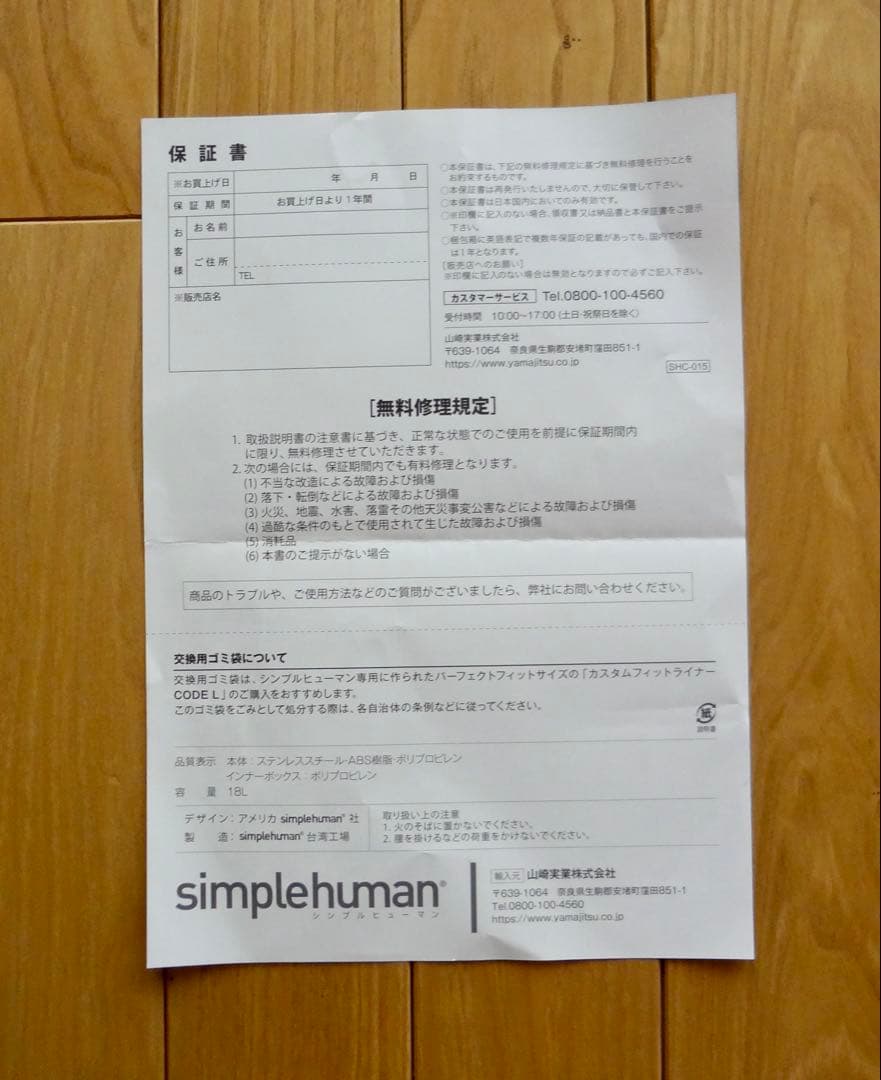 保証書
※お買上げ日 年 月 日
保証期間 お買上げ日より1年間
お客様 お名前
ご住所
TEL
※販売店名
○本保証書は、下記の無料修理規定に基づき無料修理を行うことを
お約束するものです。
○本保証書は再発行いたしませんので、大切に保管して下さい。
○本保証書は日本国内においてのみ有効です。
○※印欄に記入のない場合、領収書又は納品書と本保証書をご提示
下さい。
○梱包箱に英語表記で複数年保証の記載があっても、国内での保証
は1年となります。
[販売店へのお願い]
※印欄に記入のない場合は無効となりますので必ずご記入下さい。
カスタマーサービス Tel.0800-100-4560
受付時間 10:00~17:00 (土日・祝祭日を除く)
山崎実業株式会社
〒639-1064 奈良県生駒郡安堵町窪田851-1
https://www.yamajitsu.co.jp
SHC-015
[無料修理規定]
1. 取扱説明書の注意書に基づき、正常な状態でのご使用を前提に保証期間内
に限り、無料修理させていただきます。
2. 次の場合には、保証期間内でも有料修理となります。
(1) 不当な改造による故障および損傷
(2) 落下・転倒などによる故障および損傷
(3) 火災、地震、水害、落雷その他天災事変公害などによる故障および損傷
(4) 過酷な条件のもとで使用されて生じた故障および損傷
(5) 消耗品
(6) 本書のご提示がない場合
商品のトラブルや、ご使用方法などのご質問がございましたら、弊社にお問い合わせください。
交換用ゴミ袋について
交換用ゴミ袋は、シンプルヒューマン専用に作られたパーフェクトフィットサイズの「カスタムフィットライナー
CODE L」のご購入をおすすめします。
このゴミ袋をごみとして処分する際は、各自治体の条例などに従ってください。
紙
説明書
品質表示 本体:ステンレススチール・ABS樹脂・ポリプロピレン
インナーボックス:ポリプロピレン
容量 18L
デザイン:アメリカ simplehuman® 社
製造:simplehuman® 台湾工場
取り扱い上の注意
1. 火のそばに置かないでください。
2. 腰を掛けるなどの荷重をかけないでください。
simplehuman®
シンプルヒューマン
輸入元 山崎実業株式会社
〒639-1064 奈良県生駒郡安堵町窪田851-1
Tel.0800-100-4560
https://www.yamajitsu.co.jp